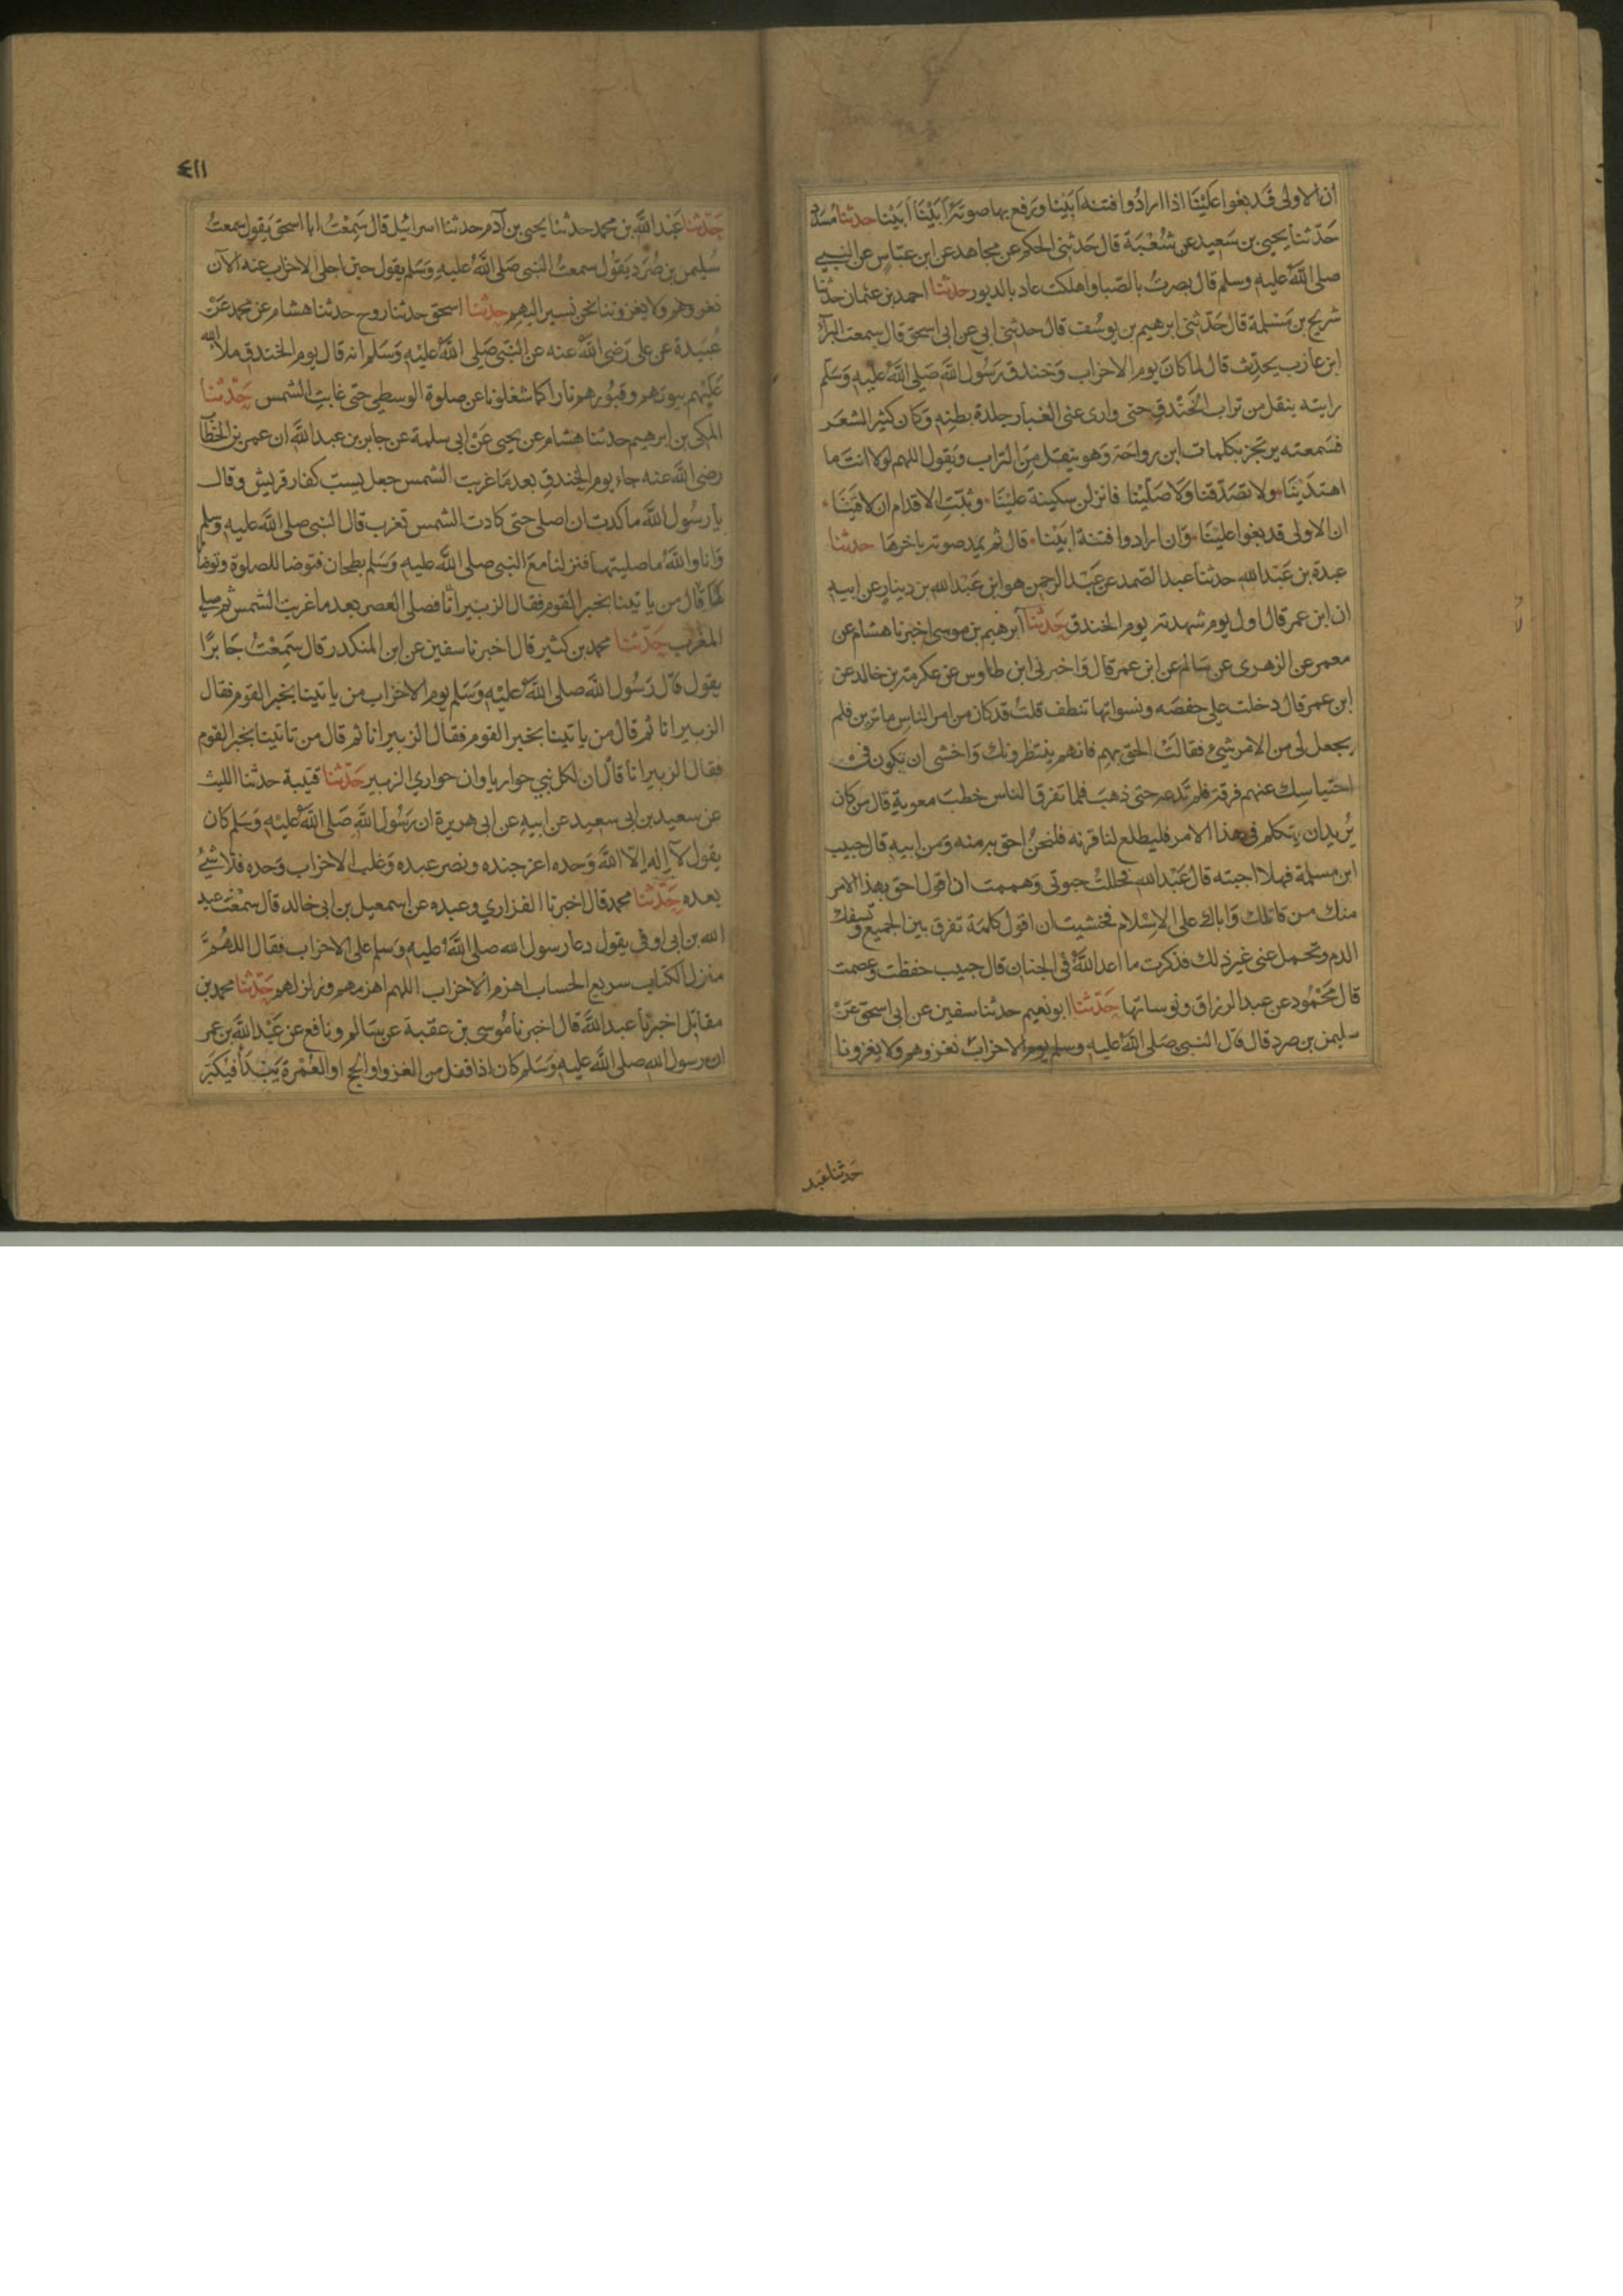 ان الاولى قد بغوا علينا اذا ارادوا فتنه ابينا ويرفع بها صوته ابينا ابينا حدثنا مسدد
حدثنا يحيى بن سعيد عن شعبة قال حدثني الحكم عن مجاهد عن ابن عباس عن النبي
صلى الله عليه وسلم قال نصرت بالصبا واهلكت عاد بالدبور حدثنا احمد بن عثمان حدثنا
شريح بن مسلمة قال حدثني ابرهيم بن يوسف قال حدثني ابي عن ابي اسحق قال سمعت البرآء
ابن عازب يحدث قال لما كان يوم الاحزاب وخندق رسول الله صلى الله عليه وسلم
رايته ينقل من تراب الخندق حتى وارى عني الغبار جلدة بطنه وكان كثير الشعر
فسمعته يرتجز بكلمات ابن رواحة وهو ينقل من التراب ويقول اللهم لولا انت ما
اهتدينا ولا تصدقنا ولا صلينا فانزلن سكينة علينا وثبت الاقدام ان لاقينا
ان الاولى قد بغوا علينا وان ارادوا فتنة ابينا قال ثم يمد صوته باخرها حدثنا
عبدة بن عبد الله حدثنا عبد الصمد عن عبد الرحمن هو ابن عبد الله بن دينار عن ابيه
ان ابن عمر قال اول يوم شهدته يوم الخندق حدثنا ابرهيم بن موسى اخبرنا هشام عن
معمر عن الزهرى عن سالم عن ابن عمر قال واخبرني ابن طاوس عن عكرمة بن خالد عن
ابن عمر قال دخلت على حفصه ونسواتها تنطف قلت قد كان من امر الناس ما ترين فلم
يجعل لى من الامر شيء فقالت الحق بهم فانهم ينتظرونك واخشى ان يكون في
احتباسك عنهم فرقة فلم تدعه حتى ذهب فلما تفرق الناس خطب معوية قال من كان
يريد ان يتكلم في هذا الامر فليطلع لنا قرنه فلنحن احق به منه ومن ابيه قال حبيب
ابن مسلمة فهلا اجبته قال عبد الله فحللت حبوتى وهممت ان اقول احق بهذا الامر
منك من قاتلك واباك على الاسلام فخشيت ان اقول كلمة تفرق بين الجميع وتسفك
الدم وتحمل عني غير ذلك فذكرت ما اعد الله في الجنان قال حبيب حفظت وعصمت
قال محمود عن عبد الرزاق ونوساتها حدثنا ابو نعيم حدثنا سفين عن ابى اسحق عن
سليمن بن صرد قال قال النبي صلى الله عليه وسلم يوم الاحزاب نغزوهم ولا يغزونا
حدثنا عبد
٤١١
حدثنا عبد الله بن محمد حدثنا يحيى بن آدم حدثنا اسرائيل قال سمعت ابا اسحق يقول سمعت
سليمن بن صرد يقول سمعت النبى صلى الله عليه وسلم يقول حين اجلى الاحزاب عنه الآن
نغزوهم ولا يغزوننا نحن نسير اليهم حدثنا اسحق حدثنا روح حدثنا هشام عن محمد عن
عبيدة عن على رضى الله عنه عن النبى صلى الله عليه وسلم انه قال يوم الخندق ملا الله
عليهم بيوتهم وقبورهم نارا كما شغلونا عن صلوة الوسطى حتى غابت الشمس حدثنا
المكى بن ابرهيم حدثنا هشام عن يحيى عن ابى سلمة عن جابر بن عبد الله ان عمر بن الخطاب
رضى الله عنه جاء يوم الخندق بعد ما غربت الشمس جعل يسب كفار قريش وقال
يا رسول الله ما كدت ان اصلى حتى كادت الشمس تغرب قال النبى صلى الله عليه وسلم
وانا والله ما صليتها فنزلنا مع النبى صلى الله عليه وسلم بطحان فتوضا للصلوة وتوضانا
لها قال من ياتينا بخبر القوم فقال الزبير انا فصلى العصر بعد ما غربت الشمس ثم صلى
المغرب حدثنا محمد بن كثير قال اخبرنا سفين عن ابن المنكدر قال سمعت جابرا
يقول قال رسول الله صلى الله عليه وسلم يوم الاحزاب من ياتينا بخبر القوم فقال
الزبير انا ثم قال من ياتينا بخبر القوم فقال الزبير انا ثم قال من ياتينا بخبر القوم
فقال الزبير انا قال ان لكل نبي حواريا وان حواري الزبير حدثنا قتيبة حدثنا الليث
عن سعيد بن ابى سعيد عن ابيه عن ابى هريرة ان رسول الله صلى الله عليه وسلم كان
يقول لا اله الا الله وحده اعز جنده ونصر عبده وغلب الاحزاب وحده فلا شيء
بعده حدثنا محمد قال اخبرنا الفزاري وعبده عن اسمعيل بن ابى خالد قال سمعت عبد
الله بن ابى اوفى يقول دعا رسول الله صلى الله عليه وسلم على الاحزاب فقال اللهم
منزل الكتاب سريع الحساب اهزم الاحزاب اللهم اهزمهم وزلزلهم حدثنا محمد بن
مقاتل اخبرنا عبد الله قال اخبرنا موسى بن عقبة عن سالم ونافع عن عبد الله بن عمر
ان رسول الله صلى الله عليه وسلم كان اذا قفل من الغزو او الحج او العمرة يبدأ فيكبر